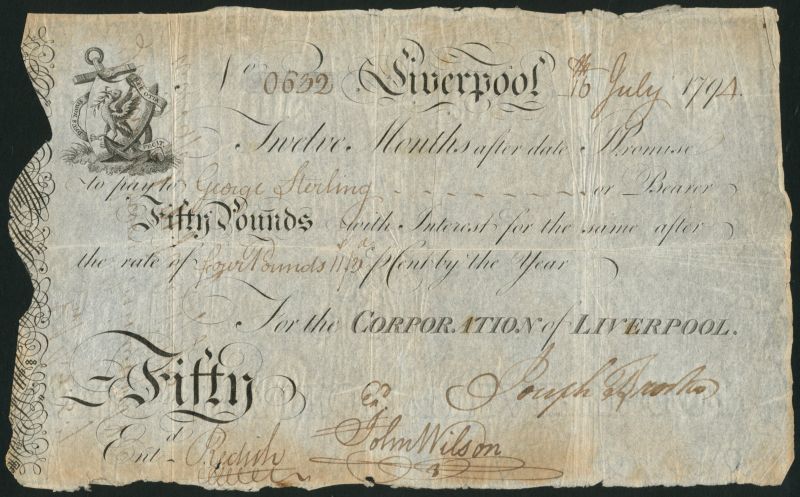 No 0652 Liverpool 16th July 1794.
Twelve Months after date I Promise
to pay to George Sterling or Bearer
Fifty Pounds with Interest for the same after
the rate of four Pounds P Cent by the Year
For the CORPORATION of LIVERPOOL.
Fifty
Joseph Brooks
Ex John Wilson
Entd